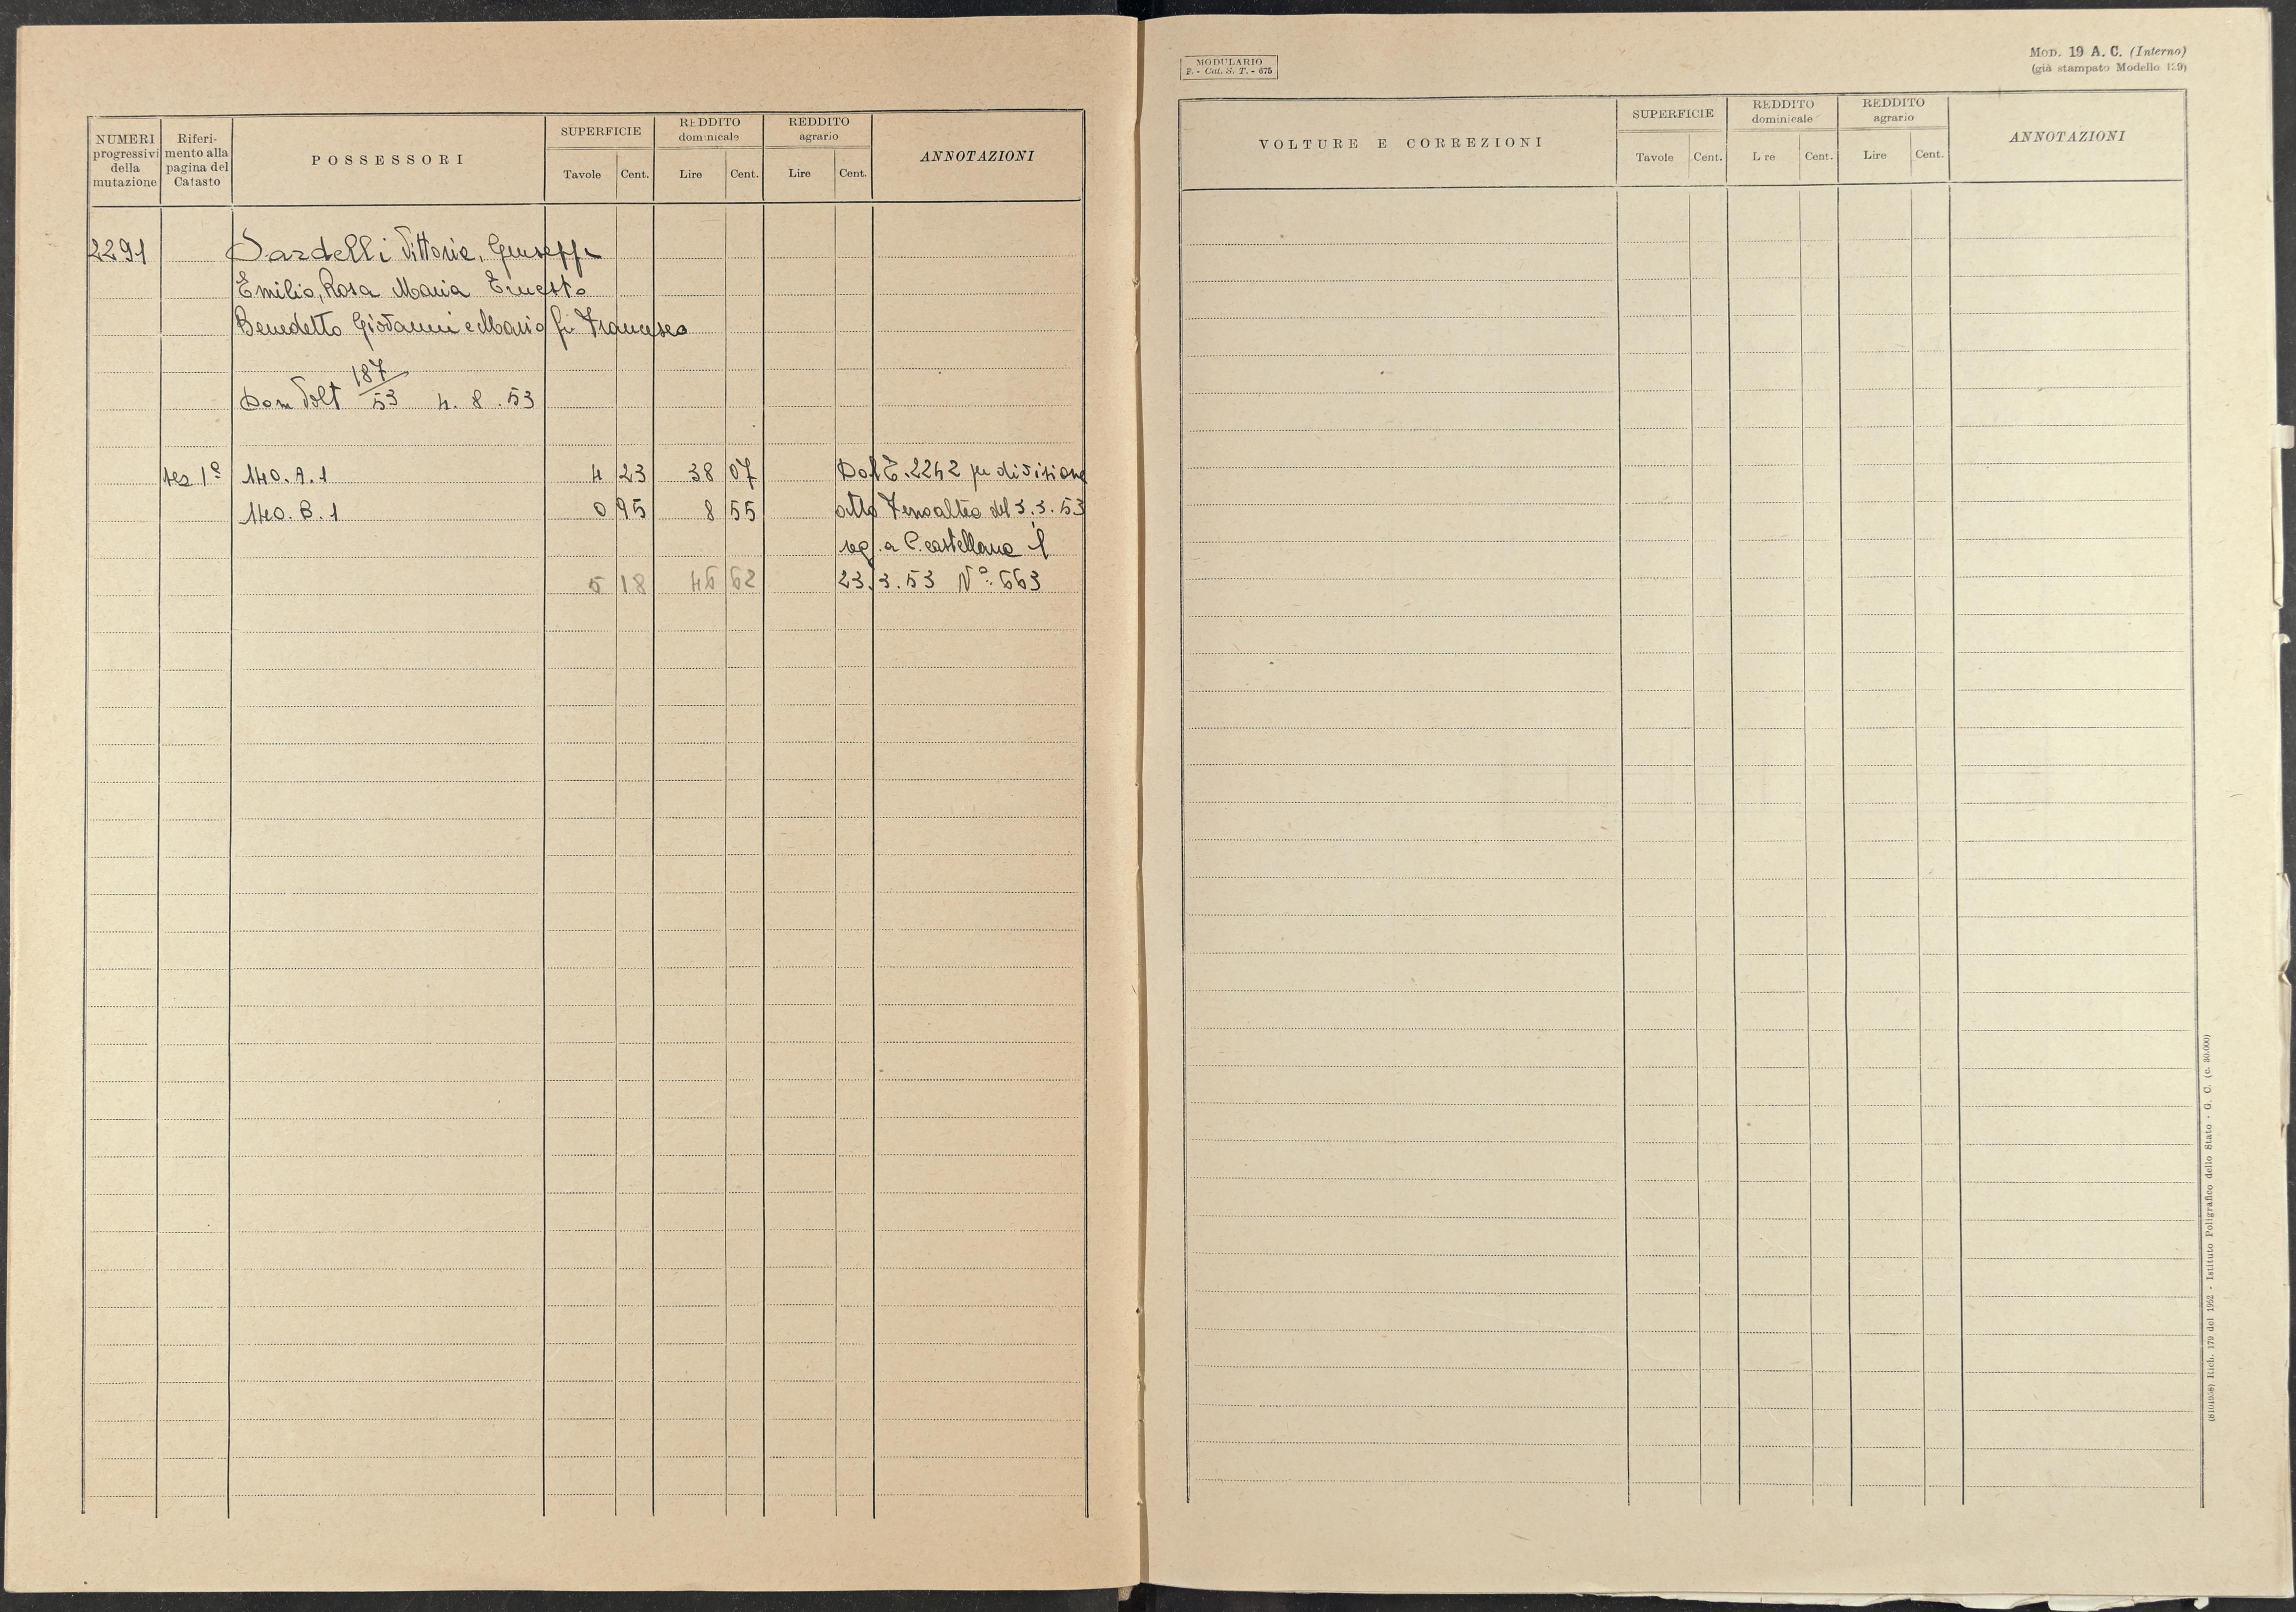 NUMERI progressivi della mutazione
Riferi- mento alla pagina del Catasto
POSSESSORI
SUPERFICIE
Tavole Cent.
REDDITO dominicale
Lire Cent.
REDDITO agrario
Lire Cent.
ANNOTAZIONI
2291 Sardelli Vittoria, Giuseppe
Emilio, Rosa Maria Ernesto
Benedetto Giovanni e Mario fu Francesco
Dom Volt 187/53 4.8.53
sez 1ª 140.A.1 4 23 38 07 Dal E.2242 per divisione
140.B.1 0 95 8 55 atto del 3.3.53
reg. a C. castellana il
5 18 46 62 23.3.53 Nº: 663
MODULARIO
F. - Cat. S. T. - 675
MOD. 19 A. C. (Interno)
(già stampato Modello 129)
VOLTURE E CORREZIONI
SUPERFICIE
Tavole Cent.
REDDITO dominicale
L re Cent.
REDDITO agrario
Lire Cent.
ANNOTAZIONI
Rich. 179 del 1952 - Istituto Poligrafico dello Stato - G. C. (c. 80.000)